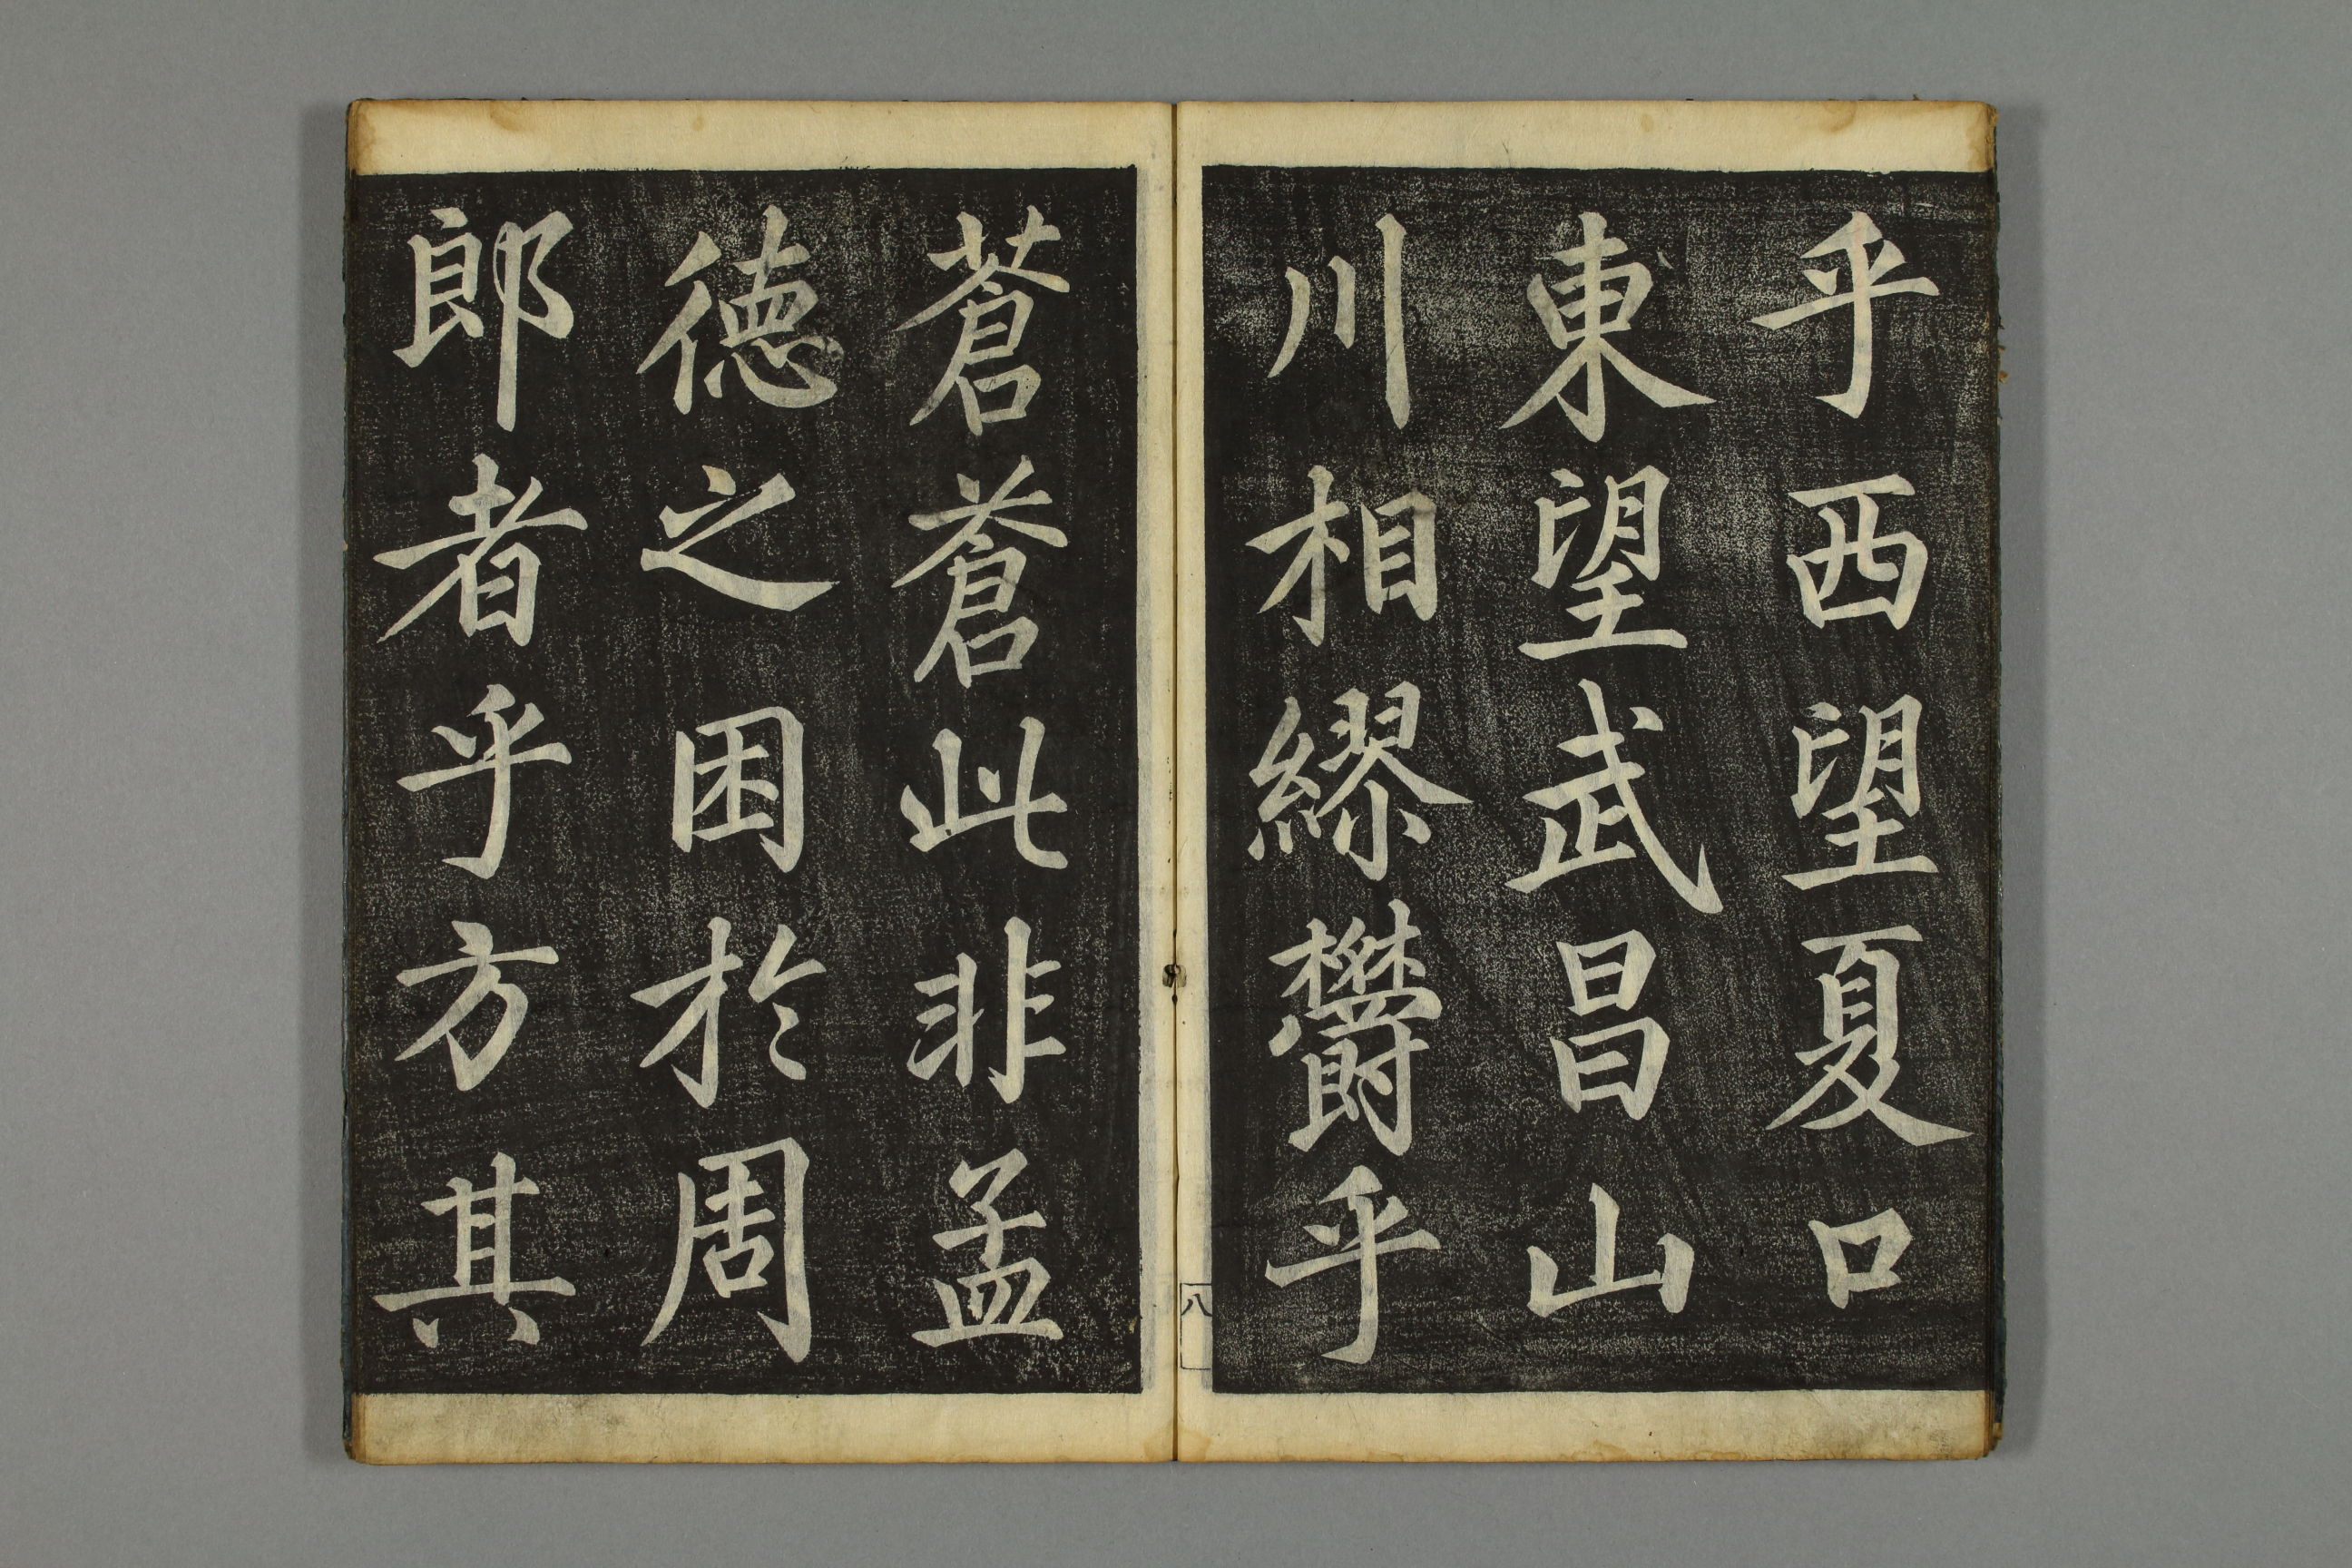 乎西望夏口
東望武昌山
川相繆欝乎
蒼蒼此非孟
德之困於周
郎者乎方其
八